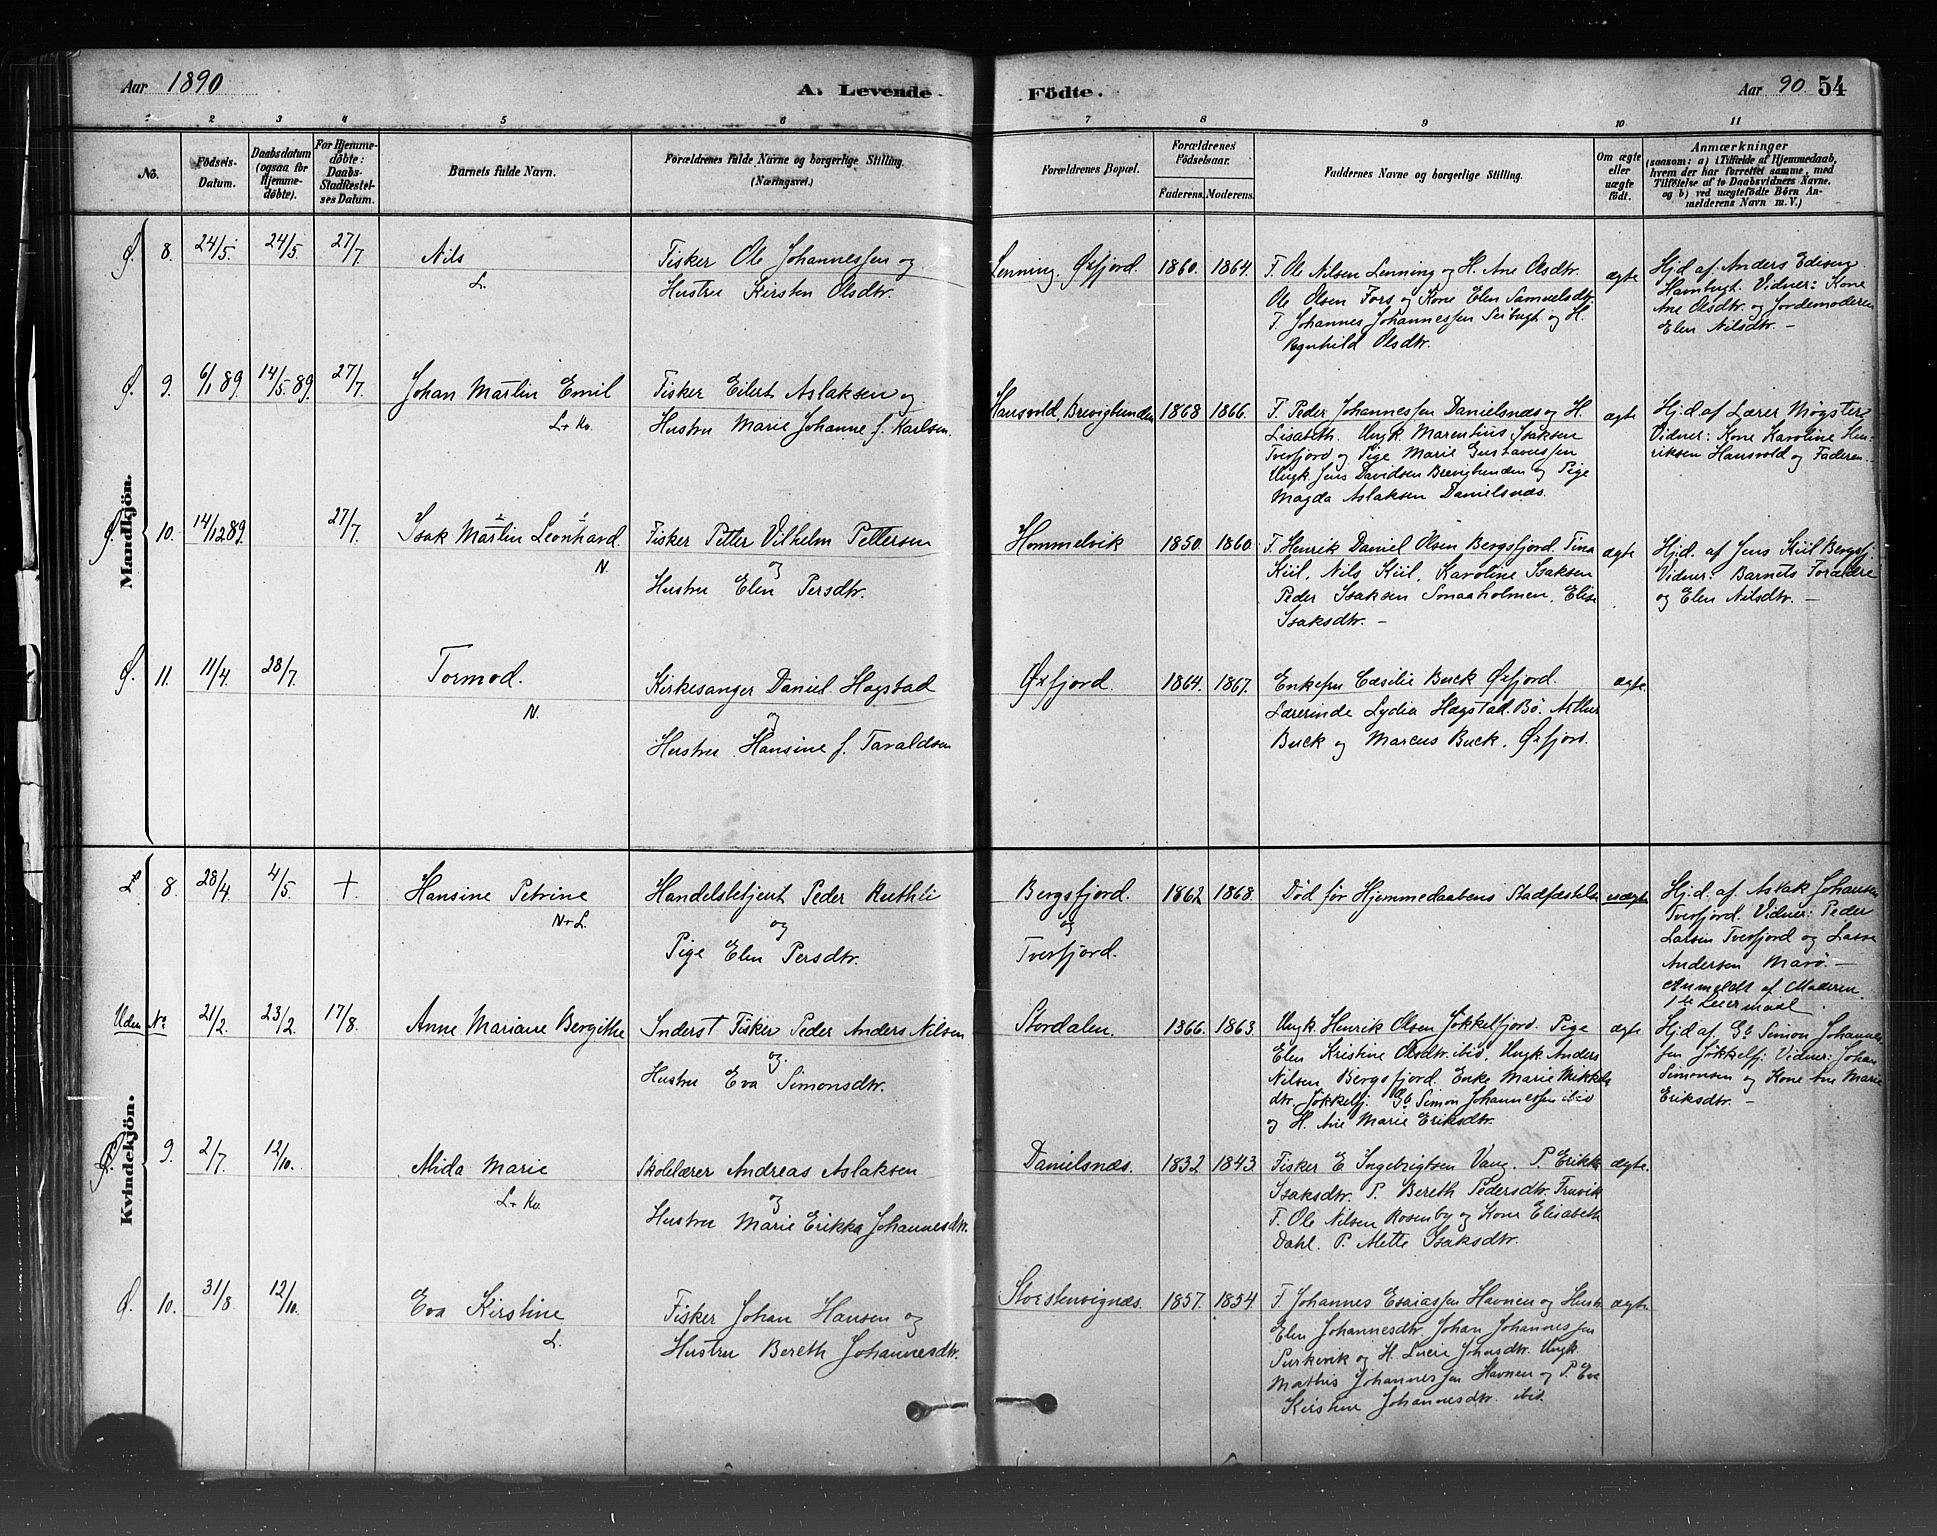 Aar 1890 A. Levende Födte. Aar 90. 54
1 2 3 4 5 6 7 8 9 10 11
No.
Födsels-
Datum.
Daabsdatum
(ogsaa for
Hjemme-
döbte).
For Hjemme-
döbte:
Daabs-
Stadfæstel-
ses Datum.
Barnets fulde Navn.
Forældrenes fulde Navne og borgerlige Stilling.
(Næringsvei.)
Forældrenes Bopæl.
Forældrenes
Födselsaar.
Faderens. Moderens.
Faddernes Navne og borgerlige Stilling.
Om ægte
eller
uægte
födt.
Anmærkninger
(saasom: a) i Tilfælde af Hjemmedaab,
hvem der har forrettet samme, med
Tilföielse af to Daabsvidners Navne.
og b) ved uægtefödte Börn An-
melderens Navn m. V.)
Mandkjön.
Ø. 8. 24/5. 24/5. 27/7.
Nils
L.
Fisker Ole Johannessen og
Hustru Kirsten Olsdtr.
Lenning. Øxfjord. 1860. 1864.
F. Ole Nilsen Lenning og H. Ane Olsdtr.
Ole Olsen Fors og Kone Elen Samuelsdtr
F. Johannes Johannessen Seibugt og H.
Ragnhild Olsdtr.
ægte
Hj.d af. Anders Edisen
Havnbugt. Vidner: Kone
Ane Olsdtr. og Jordemoderen
Elen Nilsdtr. —
Ø. 9. 6/1 89. 14/5. 89. 27/7.
Johan Martin Emil
L. + Kv.
Fisker Eilert Aslaksen og
Hustru Marie Johanne f. Karlsen.
Hansvold, Brevigbunden 1868 1866.
F. Peder Johannessen Danielsnæs og H.
Lisabeth. Ungk. Marentius Isaksen
Tverfjord og Pige Marie Gustavussen
Ungk. Jens Davidsen Brevigbunden og Pige
Magda Aslaksen Danielsnæs.
ægte
Hj.d af Lærer Møgster
Vidner: Kone Karoline Hen-
riksen Hansvold og Faderen. —
Ø. 10. 14/12 89. 27/7.
Isak Martin Leonhard.
N.
Fisker Petter Vilhelm Pettersen
og
Hustru Elen Persdtr.
Hommelvik 1850. 1860.
F. Henrik Daniel Olsen Bergsfjord. Tina
Kiil, Nils Kiil, Karoline Isaksen
Peder Isaksen Smaaholmen, Elise
Isaksdtr. —
ægte
Hj.d. af Jens Kiil Bergsfj.
Vidner: Barnets Forældre
og Elen Nilsdtr. —
Ø. 11. 11/4. 28/7.
Tormod.
N.
Kirkesanger Daniel Hagstad
og
Hustru Hansine f. Taraldsen
Øxfjord. 1864. 1867.
Enkefru Cæsilie Buck Øxfjord.
Lærerinde Lydia Hagstad. Bø. Arthur
Buck og Marcus Buck. Øxfjord.
ægte.
Kvindekjön.
8. 28/4. 4/5. +.
Hansine Petrine
N + L.
Handelsbetjent Peder Ruthli
og
Pige Elen Persdtr.
Bergsfjord.
og
Tverfjord.
1862 1868.
Død før Hjemmedaabens Stadfæstelse
uægte
Hj.d. af Aslak Johansen
Tverfjord. Vidner: Peder
Larsen Tverfjord og Lasse
Andersen Marø. —
Anmeldt af Moderen.
1ste Leiermaal.
Uden No 21/2. 23/2. 17/8.
Anne Mariane Bergithe
Inderst Fisker Peder Anders Nilsen
og.
Hustru Eva Simonsdtr.
Stordalen. 1866. 1863.
Ungk. Henrik Olsen Jøkkelfjord. Pige
Elen Kristine Olsdtr. ibid. Ungk Anders
Nilsen Bergsfjord. Enke Marie Mikkels
dtr. Jøkkelfj. Gd Simon Johannessen ibid
og H. Ane Marie Eriksdtr.
ægte
Hj.d af Gd Simon Johannes-
sen Jøkkelfj: Vidner: Johan
Simonsen og Kone Ane Marie
Eriksdtr. —
9. 2/7. 12/10.
Alida Marie
L. + Kv.
Skolelærer Andreas Aslaksen
og
Hustru Marie Erikka Johannesdtr.
Danielsnæs. 1832. 1843.
Fisker E Ingebrigtsen Vang. P. Erikka
Isaksdtr. P. Bereth Pedersdtr. Truvik
F. Ole Nilsen Rosenby og Kone Elisabeth
Dahl. P. Mette Isaksdtr.
ægte.
Ø. 10. 31/8. 12/10.
Eva Kirstine
L.
Fisker Johan Hansen og
Hustru Bereth Johannesdtr.
Storstenvignæs. 1857. 1854.
F. Johannes Esaiassen Havnen og Hustr.
Elen Johannesdtr. Johan Johannessen
Surkevik og H. Lucie Johnsdtr. Ungk.
Mathis Johannessen Havnen og P. Eva
Kirstine Johannesdtr. ibid.
ægte